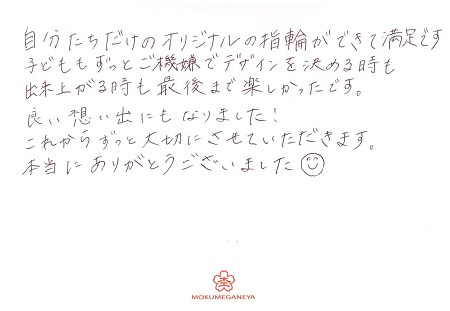 自分たちだけのオリジナルの指輪ができて満足です
子どももずっとご機嫌でデザインを決める時も
出来上がる時も最後まで楽しかったです。
良い想い出にもなりました!
これからずっと大切にさせていただきます。
本当にありがとうございました
MOKUMEGANEYA